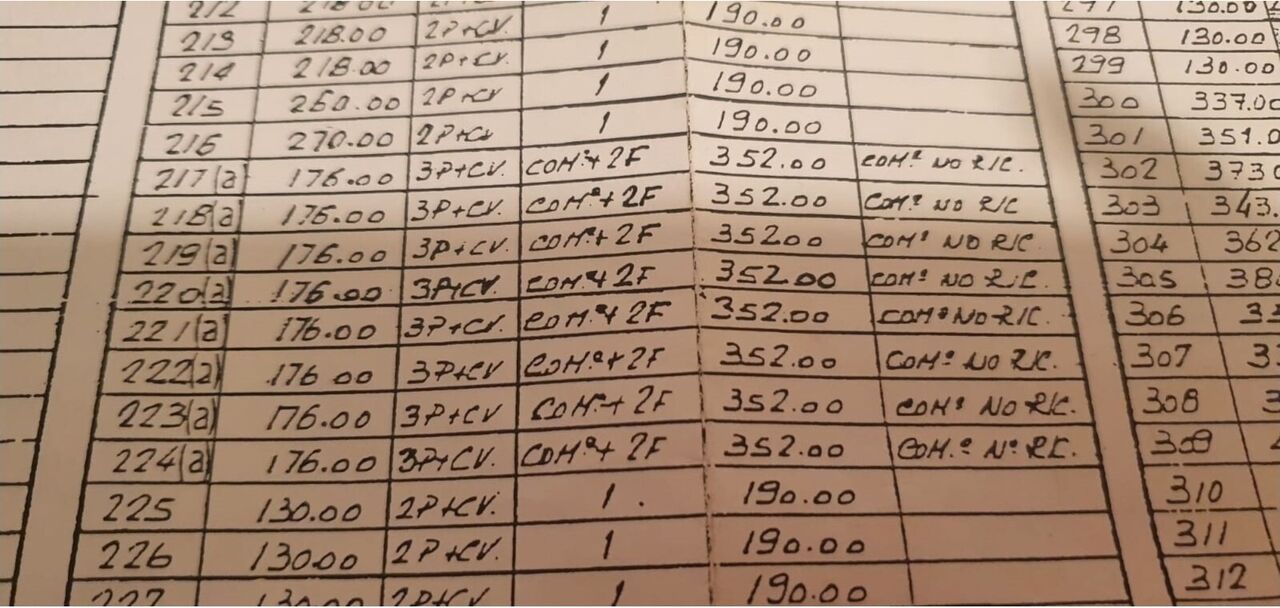 212 218.00 2P+CV. 1 190.00 297 130.00
213 218.00 2P+CV. 1 190.00 298 130.00
214 218.00 2P+CV. 1 190.00 299 130.00
215 260.00 2P+CV 1 190.00 300 337.00
216 270.00 2P+CV 1 190.00 301 351.0
217(a) 176.00 3P+CV. COMº+2F 352.00 COMº NO R/C. 302 373.0
218(a) 176.00 3P+CV. COMº+2F 352.00 COMº NO R/C 303 343.
219(a) 176.00 3P+CV. COMº+2F 352.00 COMº NO R/C 304 362
220(a) 176.00 3P+CV. COMº+2F 352.00 COMº NO R/C. 305 38
221(a) 176.00 3P+CV. COMº+2F 352.00 COMº NO R/C. 306 33
222(a) 176.00 3P+CV COMº+2F 352.00 COMº NO R/C. 307 3
223(a) 176.00 3P+CV COMº+2F 352.00 COMº NO R/C. 308 3
224(a) 176.00 3P+CV. COMº+2F 352.00 COM.º Nº R.C. 309
225 130.00 2P+CV. 1. 190.00 310
226 130.00 2P+CV. 1 190.00 311
227 130.00 2P+CV. 1 190.00 312